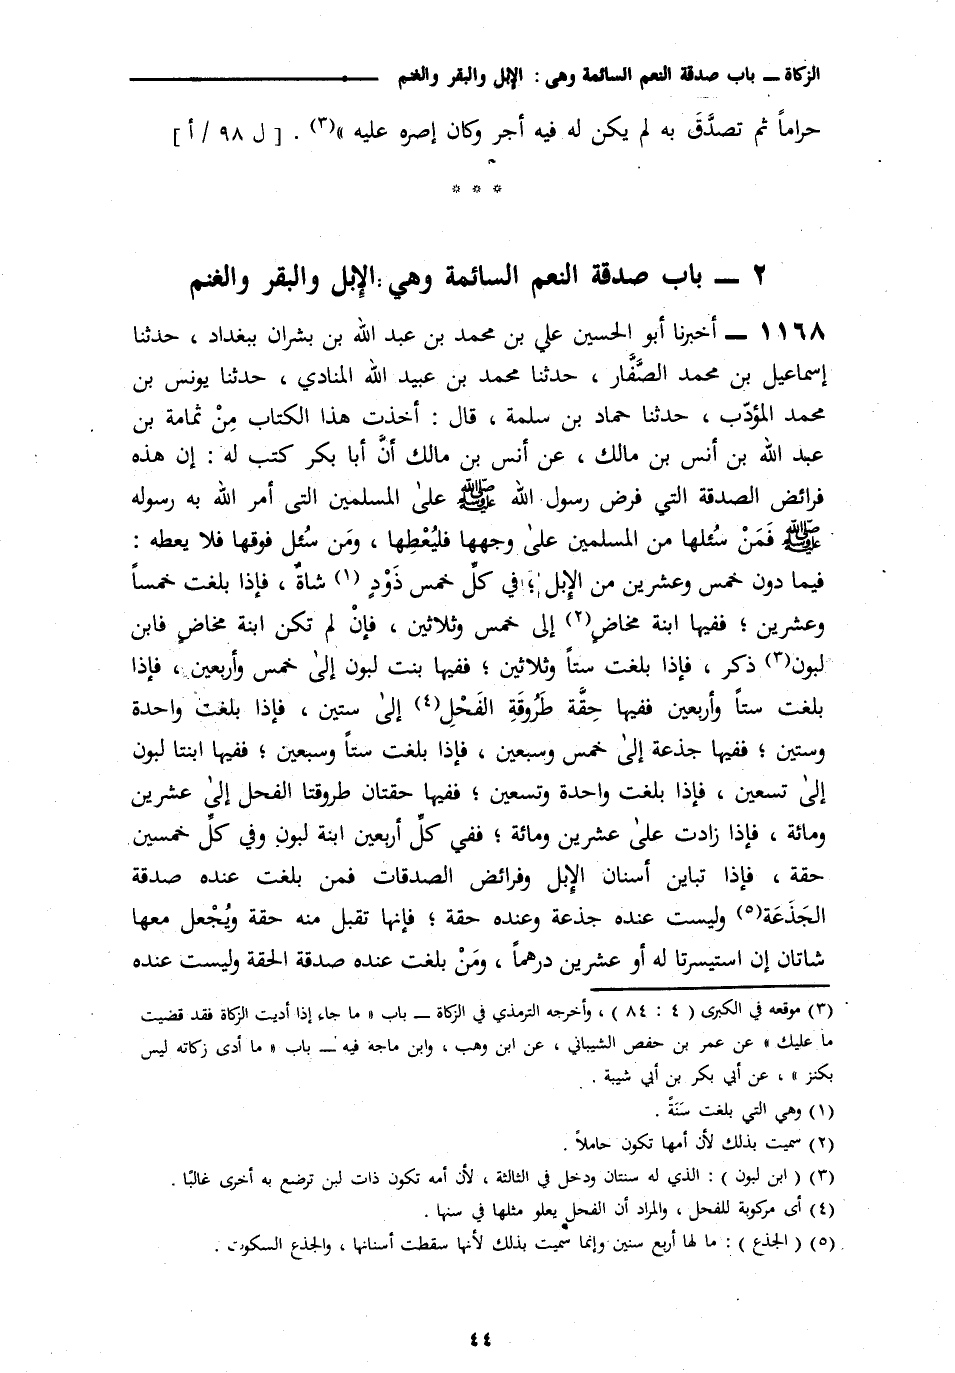 الزكاة ــ باب صدقة النعم السائمة وهى : الإبل والبقر والغنم
حراماً ثم تصدَّقَ به لم يكن له فيه أجر وكان إصره عليه »(٣) . [ ل ٩٨ / أ ]
* * *
٢ ــ باب صدقة النعم السائمة وهي : الإبل والبقر والغنم
١١٦٨ ــ أخبرنا أبو الحسين علي بن محمد بن عبد الله بن بشران ببغداد ، حدثنا
إسماعيل بن محمد الصَّفَّار ، حدثنا محمد بن عبيد الله المنادي ، حدثنا يونس بن
محمد المؤدّب ، حدثنا حماد بن سلمة ، قال : أخذت هذا الكتاب مِنْ ثمامة بن
عبد الله بن أنس بن مالك ، عن أنس بن مالك أنَّ أبا بكر كتب له : إن هذه
فرائض الصدقة التي فرض رسول الله ﷺ علىٰ المسلمين التى أمر الله به رسوله
ﷺ فَمَنْ سُئلها من المسلمين علىٰ وجهها فليُعْطِها ، ومَن سئل فوقها فلا يعطه :
فيما دون خمس وعشرين من الإبل ؛ في كلِّ خمس ذَوْدٍ (١) شاةٌ ، فإذا بلغت خمساً
وعشرين ؛ ففيها ابنة مخاضٍ(٢) إلى خمس وثلاثين ، فإنْ لم تكن ابنة مخاضٍ فابن
لبون(٣) ذكر ، فإذا بلغت ستاً وثلاثين ؛ ففيها بنت لبون إلىٰ خمس وأربعين ، فإذا
بلغت ستاً وأربعين ففيها حِقَّة طَرُوقَةِ الفَحْلِ(٤) إلىٰ ستين ، فإذا بلغت واحدة
وستين ؛ ففيها جذعة إلىٰ خمس وسبعين ، فإذا بلغت ستاً وسبعين ؛ ففيها ابنتا لبون
إلىٰ تسعين ، فإذا بلغت واحدة وتسعين ؛ ففيها حقتان طروقتا الفحل إلىٰ عشرين
ومائة ، فإذا زادت علىٰ عشرين ومائة ؛ ففي كلِّ أربعين ابنة لبون وفي كلِّ خمسين
حقة ، فإذا تباين أسنان الإبل وفرائض الصدقات فمن بلغت عنده صدقة
الجَذَعَة(٥) وليست عنده جذعة وعنده حقة ؛ فإنها تقبل منه حقة ويُجْعل معها
شاتان إن استيسرتا له أو عشرين درهماً ، ومَنْ بلغت عنده صدقة الحقة وليست عنده
(٣) موقعه في الكبرى ( ٤ : ٨٤ ) ، وأخرجه الترمذي في الزكاة ــ باب « ما جاء إذا أديت الزكاة فقد قضيت
ما عليك » عن عمر بن حفص الشيباني ، عن ابن وهب ، وابن ماجة فيه ــ باب « ما أدى زكاته ليس
بكنز » ، عن أبي بكر بن أبي شيبة .
(١) وهي التي بلغت سَنَةً .
(٢) سميت بذلك لأن أمها تكون حاملاً .
(٣) ( ابن لبون ) : الذي له سنتان ودخل في الثالثة ، لأن أمه تكون ذات لبن ترضع به أخرى غالبًا .
(٤) أى مركوبة للفحل ، والمراد أن الفحل يعلو مثلها في سنها .
(٥) ( الجذع ) : ما لها أربع سنين وإنما سميت بذلك لأنها سقطت أسنانها ، والجذع السكوت .
٤٤